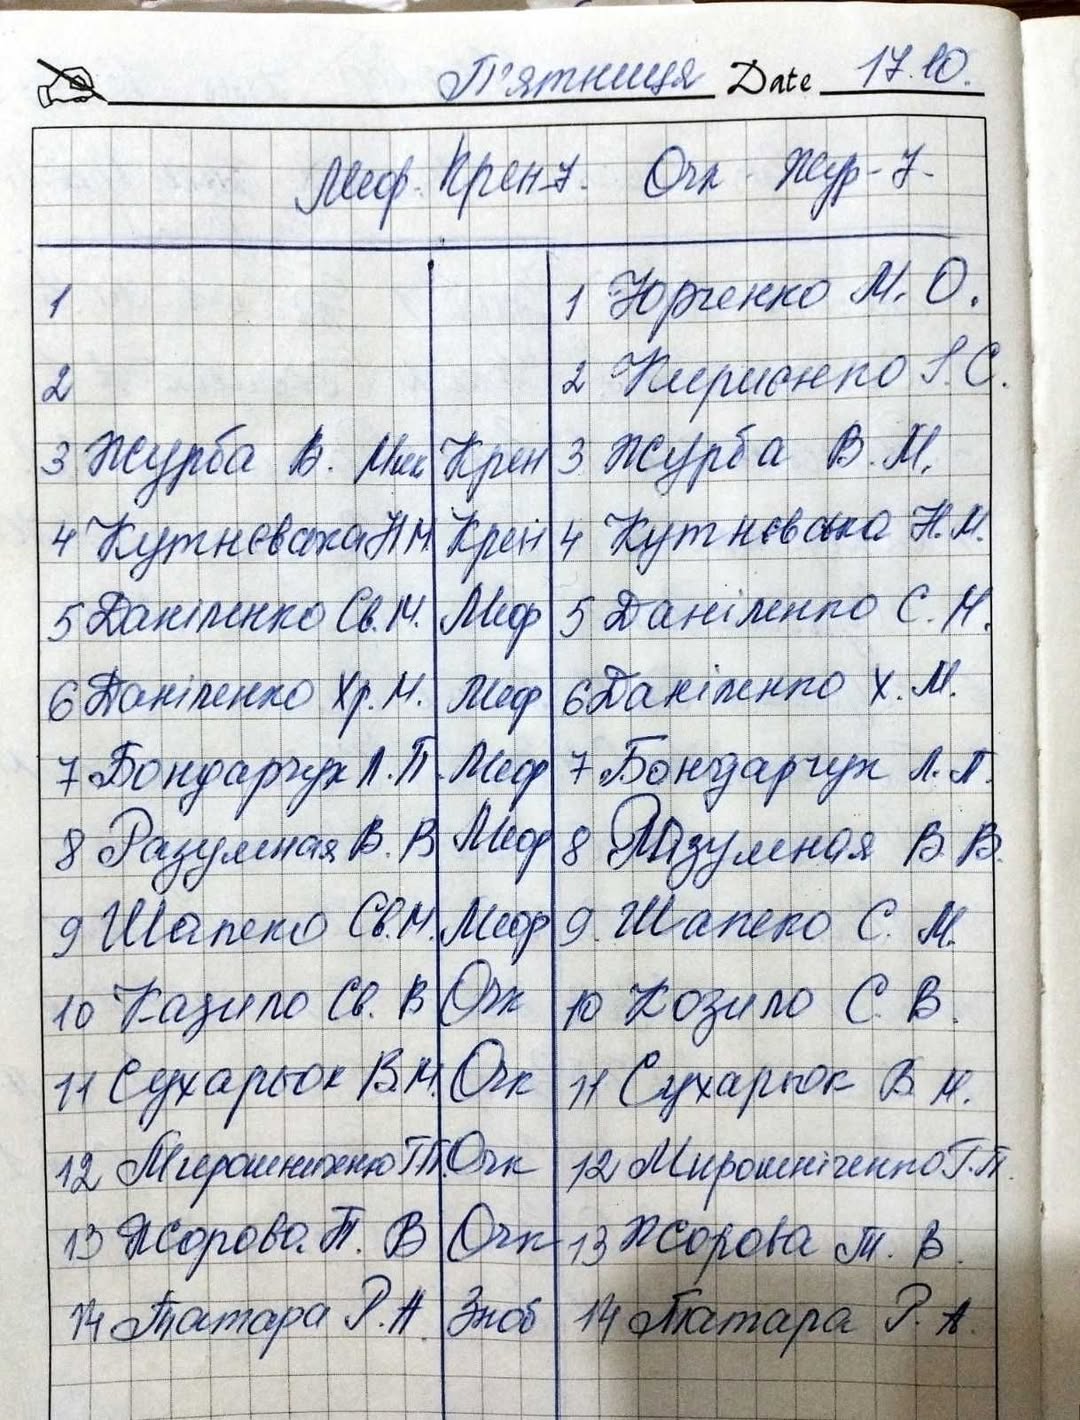 П'ятниця Date 17.10.
Меф. Крен-7. Очк - Жур-7-
1 1 Юрченко М. О.
2 2 Кириєнко І. С.
3 Журба В. Мик Крен 3 Журба В. М.
4 Кутнєваха Н М. Крен 4 Кутнєвська Н. М.
5 Даніленко Св. М. Меф 5 Даніленко С. М.
6 Даніленко Хр. М. Меф 6 Даніленко Х. М.
7 Бондарчук Л. П. Меф 7 Бондарчук Л. П.
8 Разумная В. В Меф 8 Разумная В. В.
9 Шапеко Св. М. Меф 9. Шапеко С. М.
10 Казило Св. В Очк 10 Козило С. В.
11 Сухарьок В. М. Очк 11 Сухарьок В. М.
12 Мирошниченко Г.П. Очк 12 Мирошніченко Г. П.
13 Жорова. Т. В Очк 13 Жорова Т. В.
14 Татара Р. А. Зноб 14 Татара Р. А.